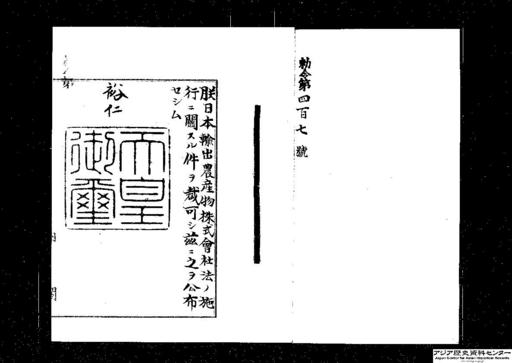 勅令第四百七號
朕日本輸出農産物株式會社法ノ施
行ニ關スル件ヲ裁可シ茲ニ之ヲ公布
セシム
裕仁
天皇
御璽
内閣
アジア歴史資料センター
Japan Center for Asian Historical Records